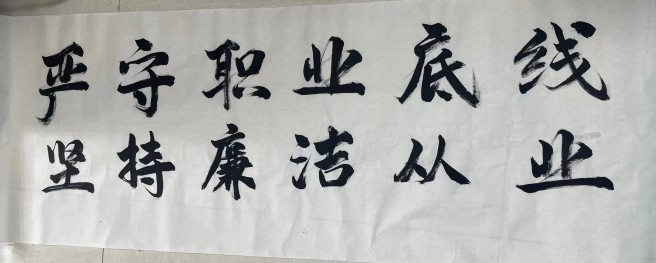 严守职业底线
坚持廉洁从业